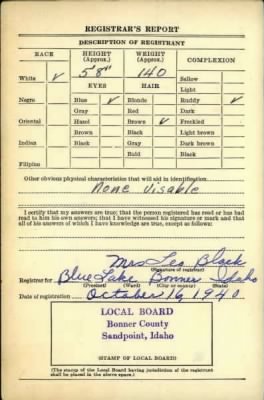 REGISTRAR'S REPORT
DESCRIPTION OF REGISTRANT
RACE HEIGHT (Approx.) WEIGHT (Approx.) COMPLEXION
White ✓ 5'8" 140 Sallow
Light
EYES HAIR
Negro Blue ✓ Blonde Ruddy ✓
Gray Red Dark
Oriental Hazel Brown ✓ Freckled
Brown Black Light brown
Indian Black Gray Dark brown
Bald Black
Filipino
Other obvious physical characteristics that will aid in identification
None Visable
I certify that my answers are true; that the person registered has read or has had
read to him his own answers; that I have witnessed his signature or mark and that
all of his answers of which I have knowledge are true, except as follows:
Mrs Leo Black
(Signature of registrar)
Registrar for Blue Lake Bonner Idaho
(Precinct) (Ward) (City or county) (State)
Date of registration October 16, 1940
LOCAL BOARD
Bonner County
Sandpoint, Idaho
(STAMP OF LOCAL BOARD)
(The stamp of the Local Board having jurisdiction of the registrant
shall be placed in the above space.)